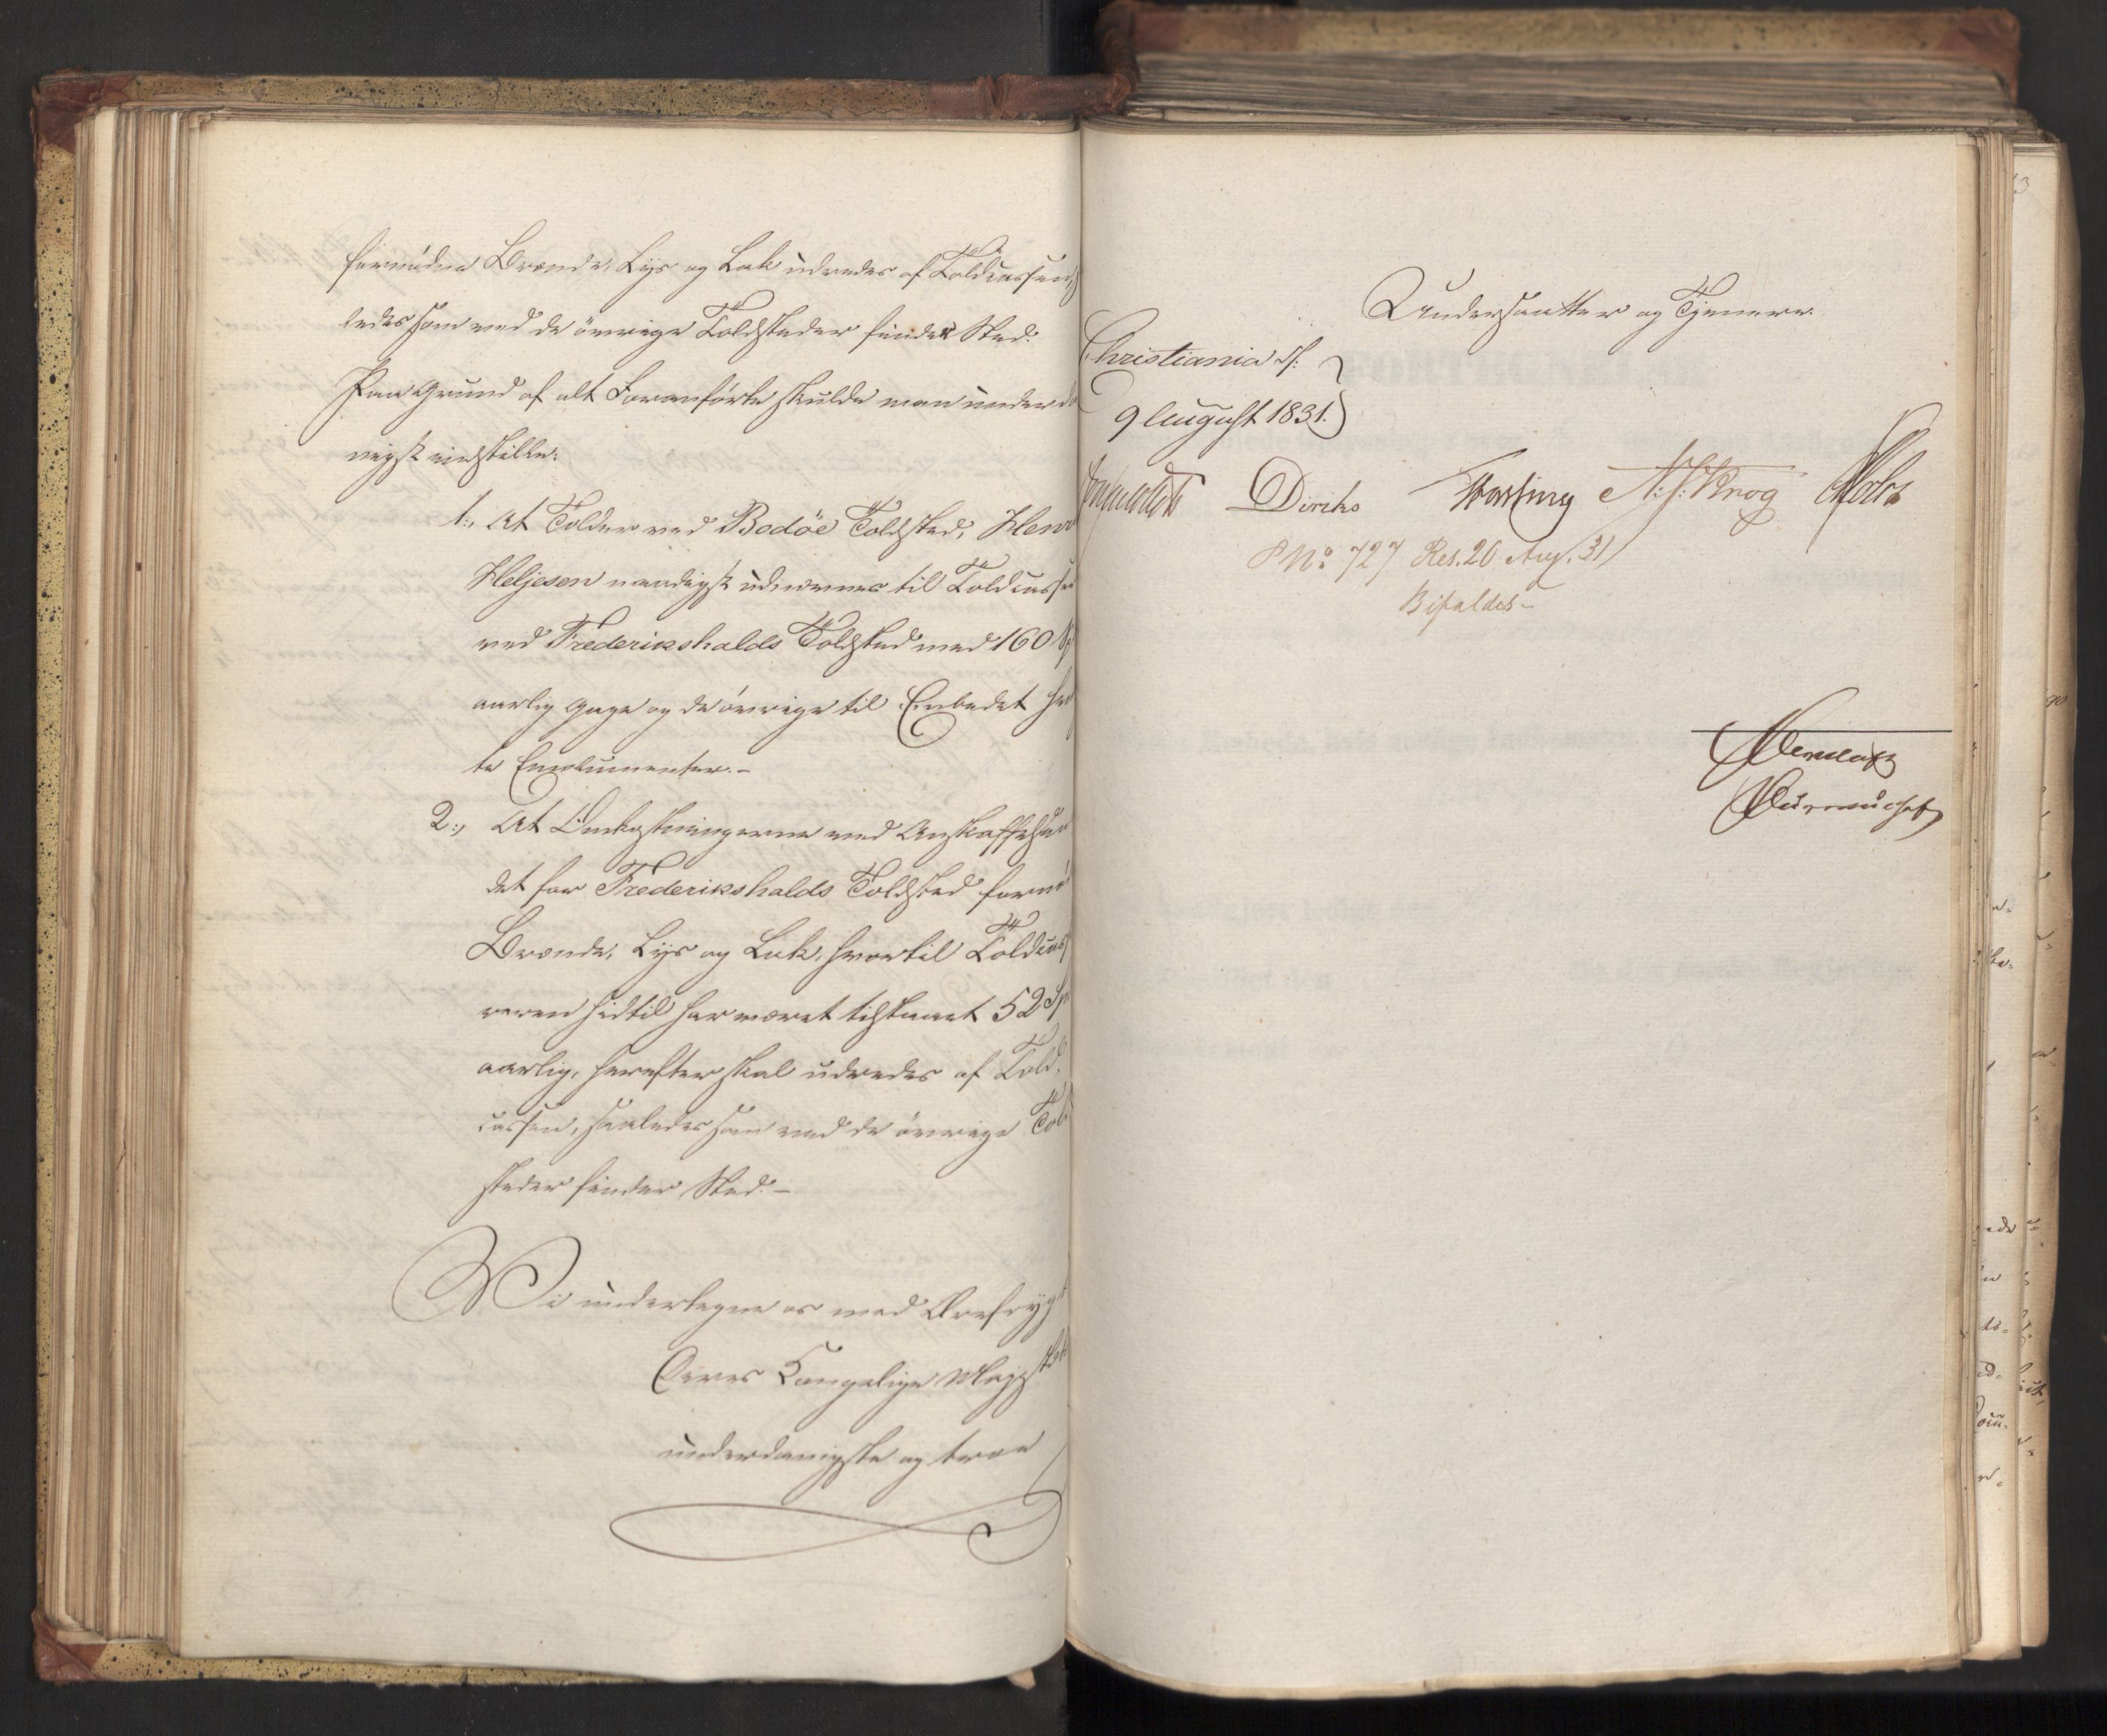 fornödne Brænde, Lys og Lak udredes af Toldcassen,
ledes som ved de övrige Toldsteder finder Sted.
Paa Grund af alt Foranförte skulde man underd
nigst indstille:
1:, At Tolder ved Bodöe Toldsted, Henr
Heljesen naadigst udnævnes til Toldcasse
ved Frederikshalds Toldsted med 160 Sp
aarlig Gage og de övrige til Embedet hen
te Emolumenter.-
2:, At Omkostningerne ved Anskaffelsen
det for Frederikshalds Toldsted fornö
Brænde, Lys og Lak, hvortil Toldcas
reren hidtil har været tilstaaet 52 Sp
aarlig, herefter skal udredes af Told,
cassen, saaledes som ved de övrige Told
steder finder Sted.-
Vi undertegne os med Ærefrygt
Deres Kongelige Majestæts
underdanigste og troe
Undersaatter og Tjenere.
Christiania d:
9 August 1831.
Diriks N: J: Krog Holst
PNo 727 Res. 20 Aug. 31
Bifaldes-